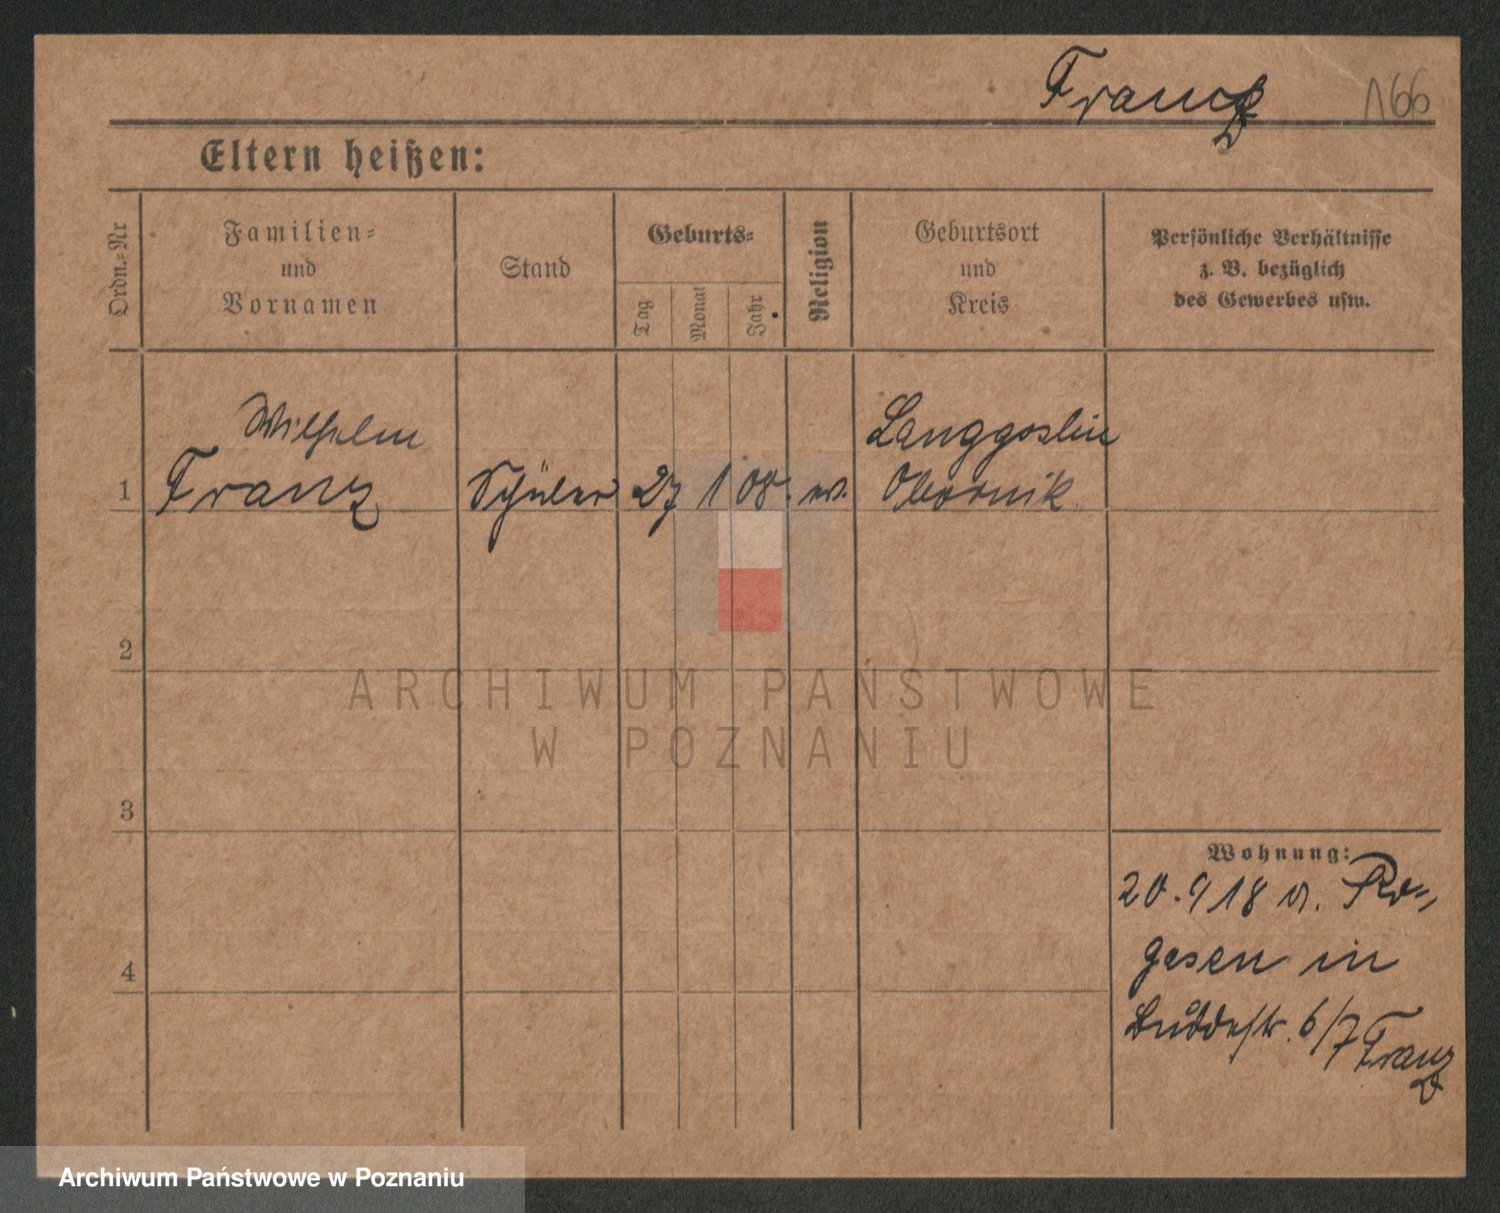 Franz 166
Eltern heißen:
Ordn.-Nr
Familien-
und
Vornamen
Stand
Geburts-
Tag
Monat
Jahr
Religion
Geburtsort
und
Kreis
Persönliche Verhältnisse
z. B. bezüglich
des Gewerbes usw.
Wilhelm Langgoslin
1 Franz Schüler 27 1 08. ev. Obornik
2
ARCHIWUM PAŃSTWOWE
W POZNANIU
3
Wohnung:
20. 9 18 v. Ro-
gasen in
4
Buddestr. 6/7 Franz
Archiwum Państwowe w Poznaniu